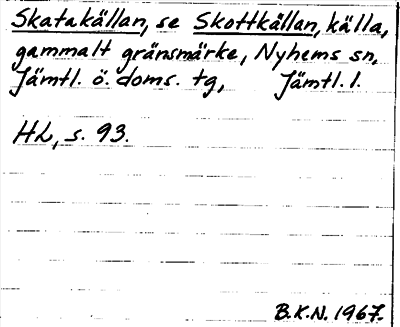 Skatakällan, se Skottkällan, källa,
gammalt gränsmärke, Nyhems sn,
Jämtl. ö. doms. tg, Jämtl. l.
HL, s. 93.
B.K.N. 1967.